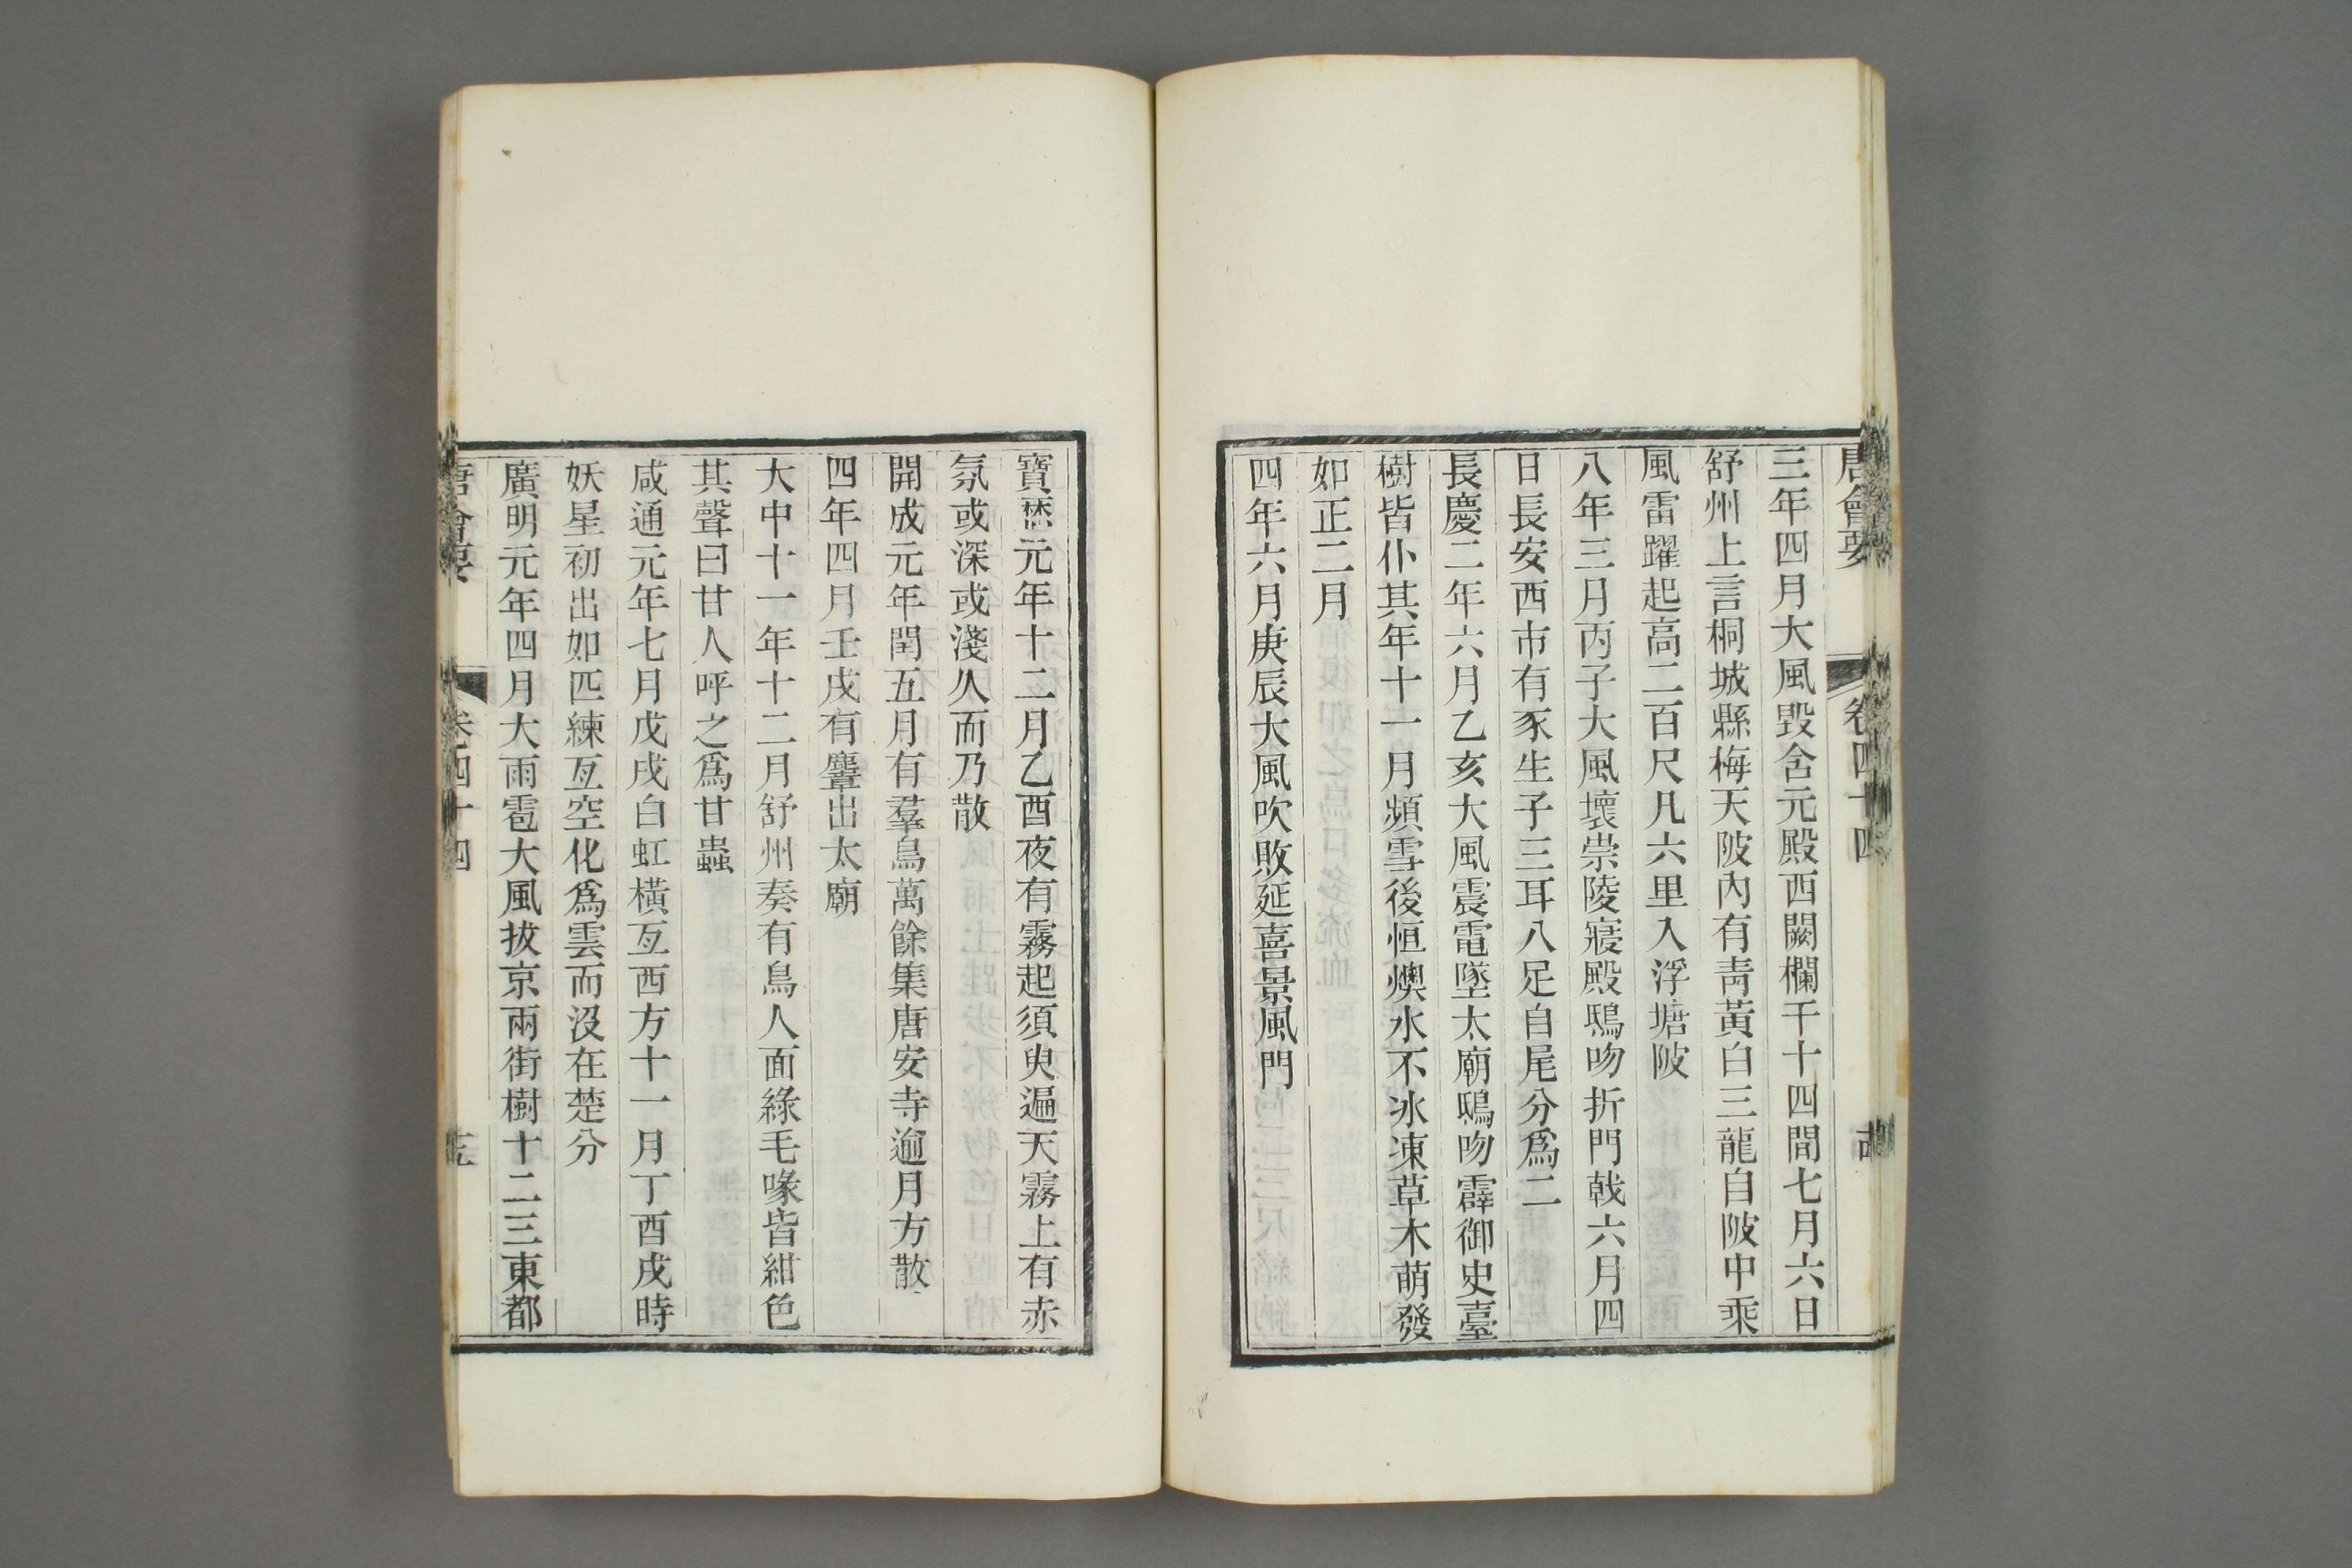 唐會要 卷四十四
三年四月大風毀含元殿西闕欄干十四間七月六日
舒州上言桐城縣梅天陂內有靑黃白三龍自陂中乘
風雷躍起高二百尺凡六里入浮塘陂
八年三月丙子大風壞崇陵寢殿鴟吻折門戟六月四
日長安西市有豕生子三耳八足自尾分爲二
長慶二年六月乙亥大風震電墜太廟鴟吻霹御史臺
樹皆仆其年十一月頻雪後恒燠水不冰凍草木萌發
如正二月
四年六月庚辰大風吹敗延喜景風門
寶厯元年十二月乙酉夜有霧起須臾遍天霧上有赤
氛或深或淺久而乃散
開成元年閏五月有羣鳥萬餘集唐安寺逾月方散
四年四月壬戌有麞出太廟
大中十一年十二月舒州奏有鳥人面綠毛喙皆紺色
其聲曰甘人呼之爲甘蟲
咸通元年七月戊戌白虹橫亙西方十一月丁酉戌時
妖星初出如匹練亙空化爲雲而沒在楚分
廣明元年四月大雨雹大風拔京兩街樹十二三東都
唐會要 卷四十四